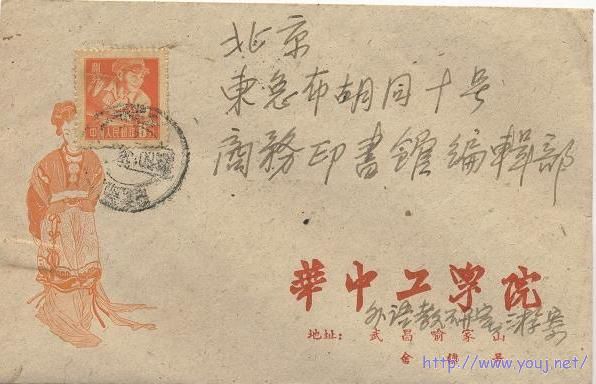 北京
東总布胡同十号
商務印書館編輯部
中国人民邮政
華中工學院
外语教研室
地址: 武昌喻家山
http://www.youj.net/